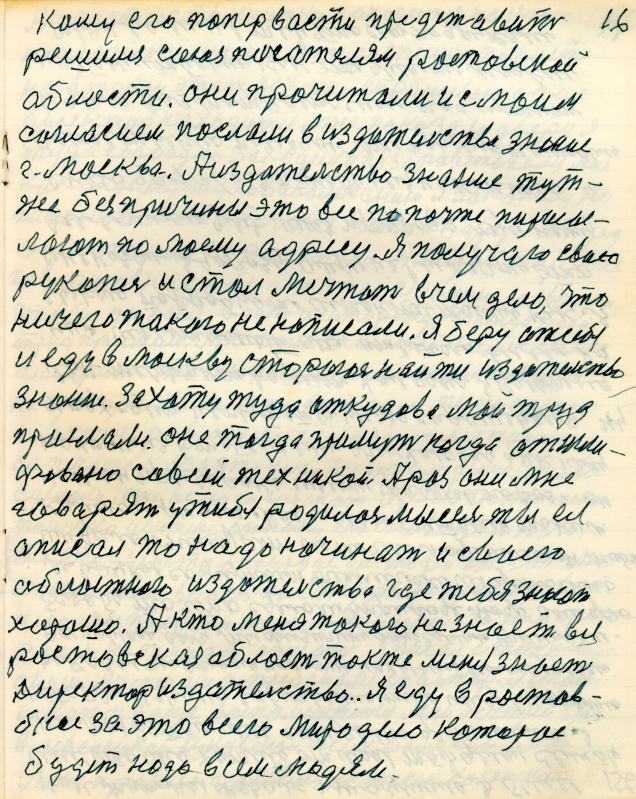 кому его поперваети представить 16
решили союз писателям ростовской
области. они прочитали и с моим
согласием послали в издателства знание
г. Москва. А издателство знание тут-
же без причины это все по почте присы-
лают по моему адресу. Я получаю свою
рукопись и стал мечтат в чем дело, что
ничего такого не написали. Я беру
и еду в москву стораюя найти издателство
знание. Захожу туда откудова мой труд
прислали. оне тогда примут когда отшли-
фовано совсей техникой. А раз они мне
говарят у тибя родилоя мысля ты ея
описал то надо начинат и своего
облостного издателства где тебя знают
хорошо. А кто меня такого не знает вся
ростовская облост также меня знает
директор издателство.. Я еду в ростов-
бы за это всего миро дело которое
будет надо всем людям.